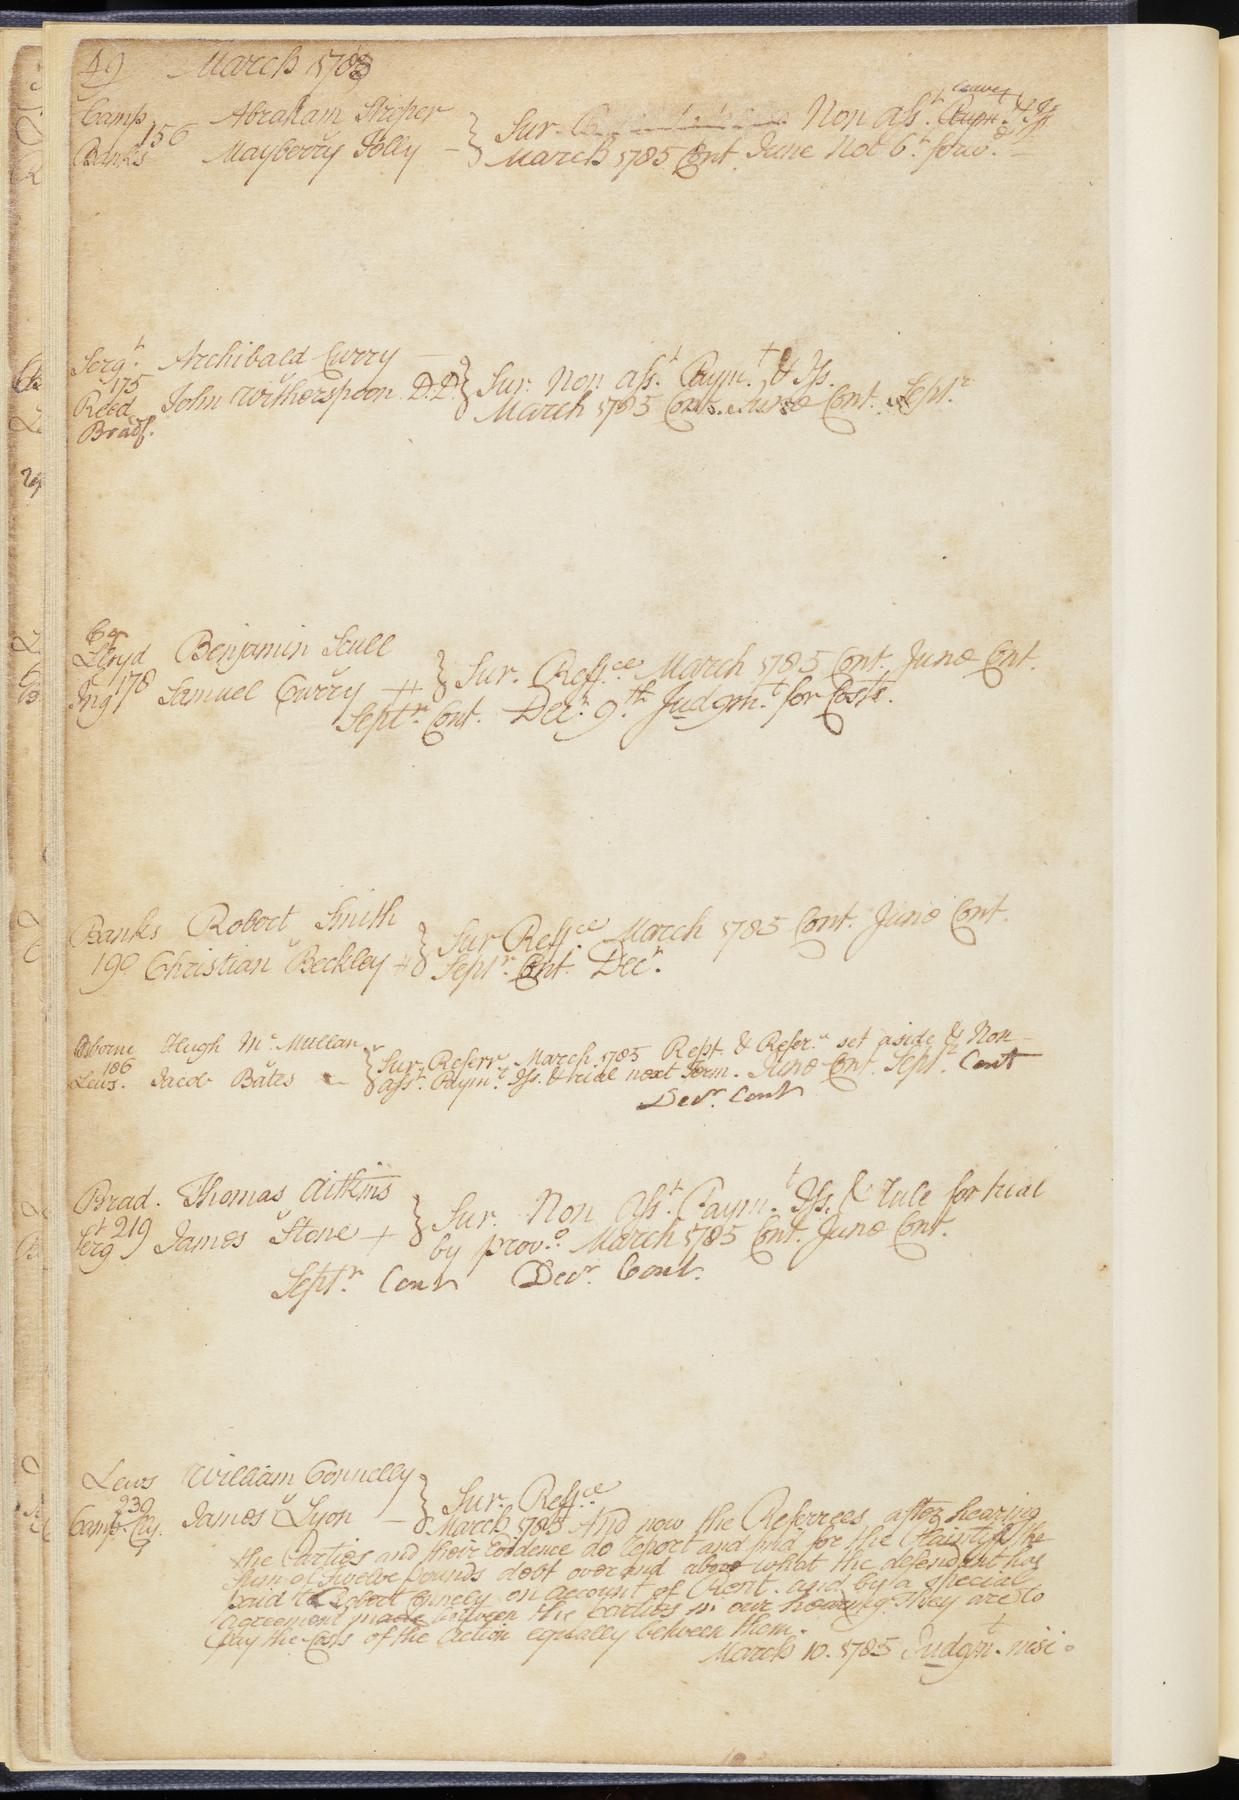 49 March 1783
Camp Abraham Striper } Sur. Non ass.t leave Paym.t & Iss
Banks 156 v Mayberry Jolly } March 1785 Cont. June Not 6.t
Serg.t Archibald Curry
175 v } Sur. Non Ass.t Paym.t & Iss.
Reed John Witherspoon D.D. } March 1785 Cont. June Cont. Sept.r
Bradf.
Lloyd Benjamin Scull } Sur. Reff.ce March 1785 Cont. June Cont.
Ing 178 v Samuel Curry }
Sept.r Cont. Dec.r 9.th Judgm.t for Costs.
Banks Robert Smith } Sur Reff.ce March 1785 Cont. June Cont.
190 v Christian Beckley } Sept.r Cont. Dec.r
Osborne Hugh Mc.Mullan } Sur. Referr. March 1785 Rept. & Refer.ce set aside & Non
186 v
Lewis. Jacob Bates } ass.t Paym.t Iss. & trial next Term. June Cont. Sept.r Cont
Dec.r Cont
Brad. Thomas Aitkins } Sur. Non Ass.t Paym.t Iss. & rule for trial
219 v
Serg James Stone } by prov.o March 1785 Cont. June Cont.
Sept.r Cont Dec.r Cont.
Lewis William Connelly } Sur. Reff.ce
239 v
Camp James Lyon } March 1785 And now the Referrees after hearing
the Parties and their Evidence do report and find for the Plaintiff the
Sum of Twelve Pounds debt over and above what the defendant has
paid to Robert Connely on account of Rent. and by a special
agreement made between the parties in our hearing They are to
pay the Costs of the Action equally between them.
March 10. 1785 Judgm.t nisi